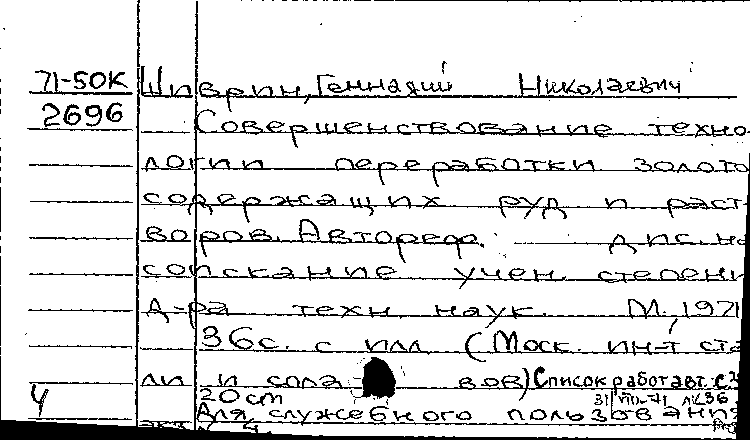 71-50К Шиврин, Геннадий Николаевич
2696 Совершенствование техно
логии переработки золото
содержащих руд и раст
воров. Автореф. дис. на
соискание учен. степени
д-ра техн. наук. М., 1971
36с. с илл. (Моск. ин-т ста
ли и спла вов) Список работ авт. с.
4 20 cm
Для служебного пользования